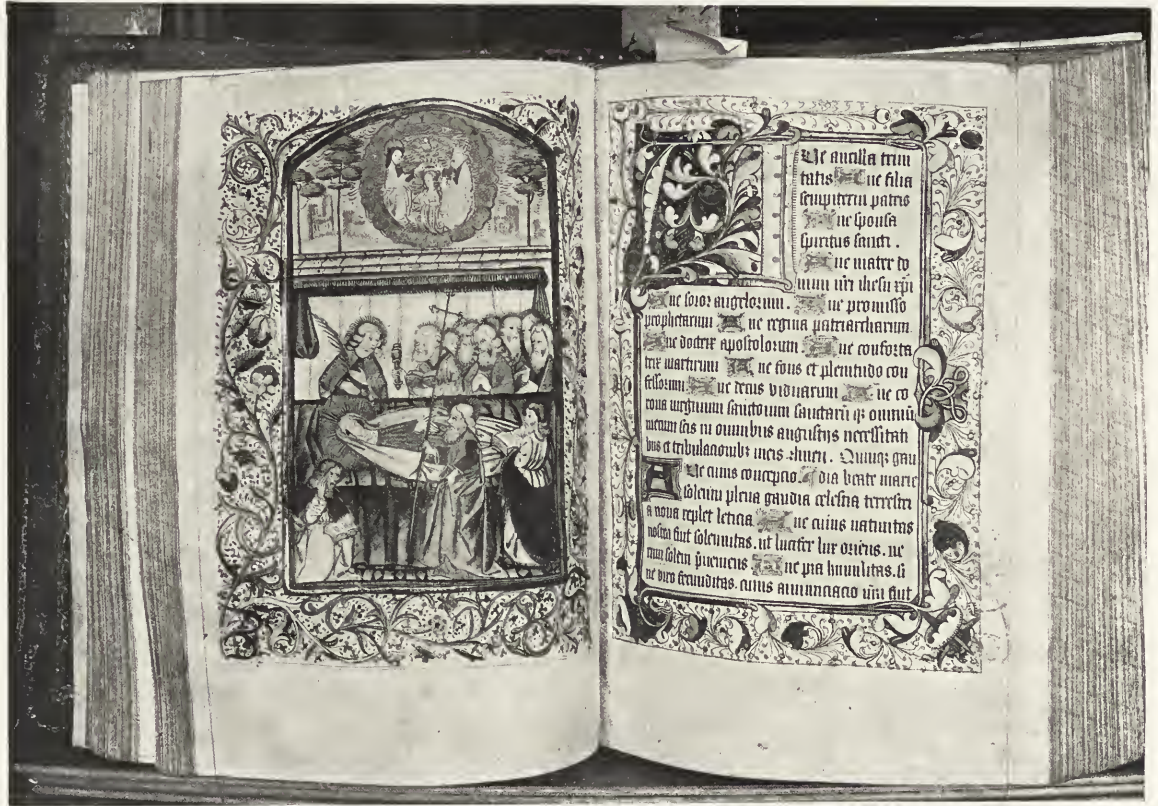 Ave ancilla trini
tatis Ave filia
sempiterni patris
Ave sponsa
spiritus sancti .
Ave mater do
mini nr̄i ihesu xp̄i
Ave soror angelorum . Ave promisso
prophetarum Ave regina patriarcharum
Ave doctrix apostolorum Ave conforta
trix martirum Ave fons et plenitudo con
fessorum Ave decus viduarum Ave co
rona virginum sanctorum sanctarū qz omniū
mecum sis in omnibus angustijs necessitati
bus et tribulacionibz meis . Amen . Quinqz gau
Ave cuius concepcio . dia beate marie
solenni plena gaudia celestia terrestri
a noua replet leticia . Ave cuius natiuitas
nostra fuit solennitas . ut lucifer lux oriens . ve
rum solem p̄ueniens Ave pia humilitas . si
ne viro fecunditas . cuius annunciacio nr̄a fuit